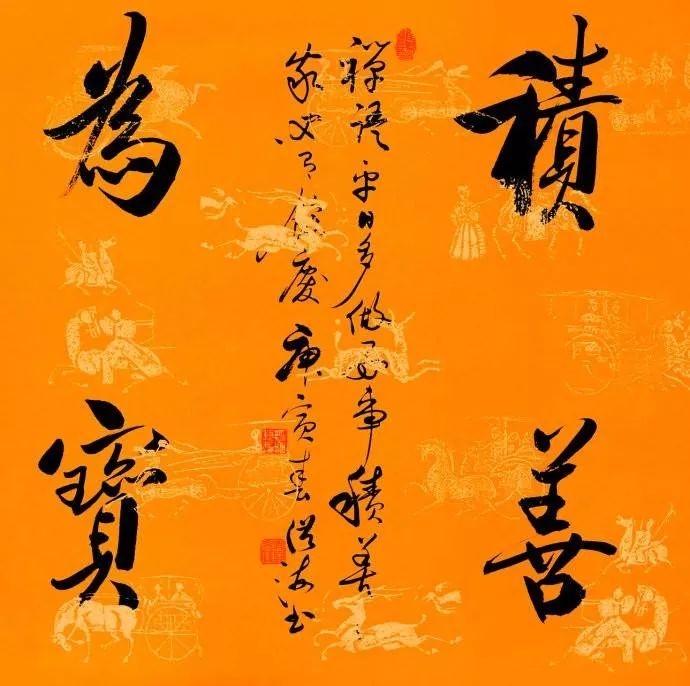 積善
為寶
禪語平日多做善事積善
家必有餘慶庚寅春從海書